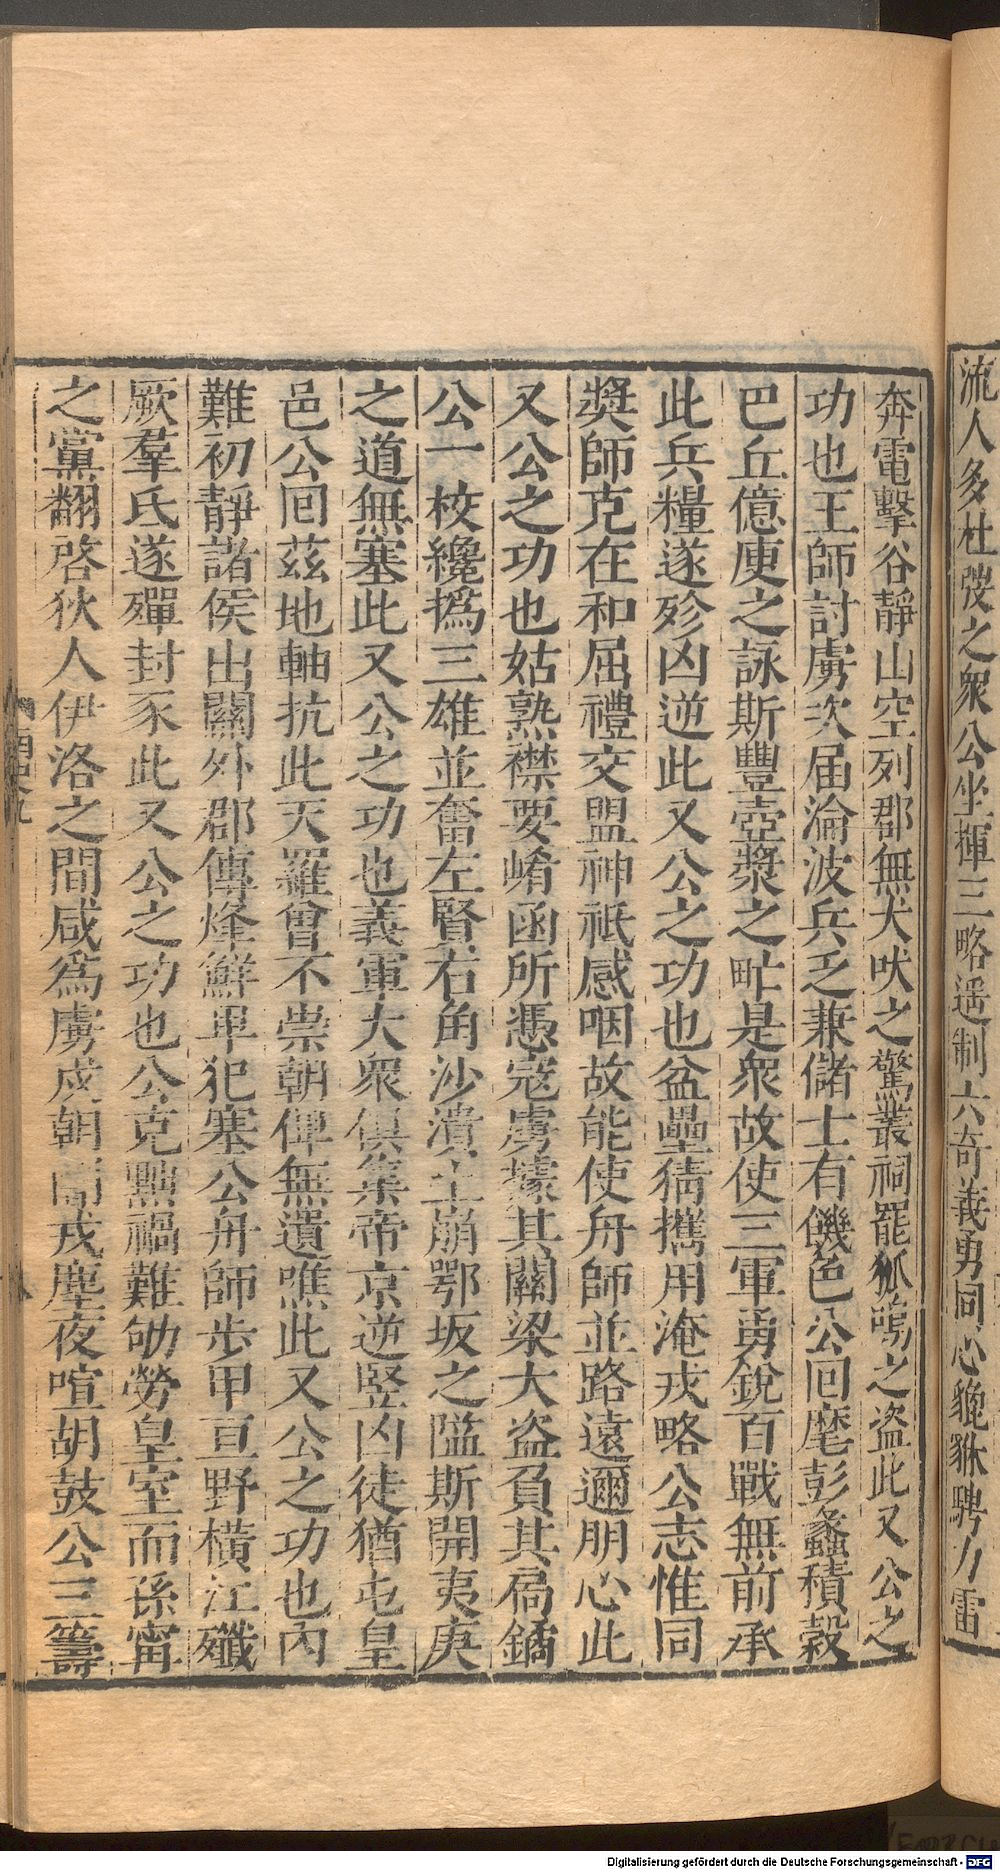 流人多杜弢之衆公坐揮三略遥制六奇義勇同心貔貅騁力雷
奔電擊谷靜山空列郡無犬吠之驚叢祠罷狐鳴之盗此又公之
功也王師討虜次届淪波兵乏兼儲士有饑色公回麾彭蠡積穀
巴丘億庾之詠斯豐壺漿之眂是衆故使三軍勇銳百戰無前承
此兵糧遂殄凶逆此又公之功也盆壘猜攜用淹戎略公志惟同
奬師克在和屈禮交盟神祇感咽故能使舟師並路遠邇朋心此
又公之功也姑熟襟要崤函所憑寇虜據其關梁大盗負其扃鐍
公一校纔撝三雄並奮左賢右角沙潰土崩鄂坂之隘斯開夷庚
之道無塞此又公之功也義軍大衆俱集帝京逆竪凶徒猶屯皇
邑公回茲地軸抗此天羅曾不崇朝俾無遺噍此又公之功也内
難初靜諸侯出關外郡傳烽鮮卑犯塞公舟師步甲亘野橫江殲
厥羣氐遂殫封豕此又公之功也公克黜禍難劬勞皇室而孫甯
之黨翻啓狄人伊洛之間咸爲虜戍朝戎塵夜喧胡鼓公三籌
Digitalisierung gefördert durch die Deutsche Forschungsgemeinschaft - DFG